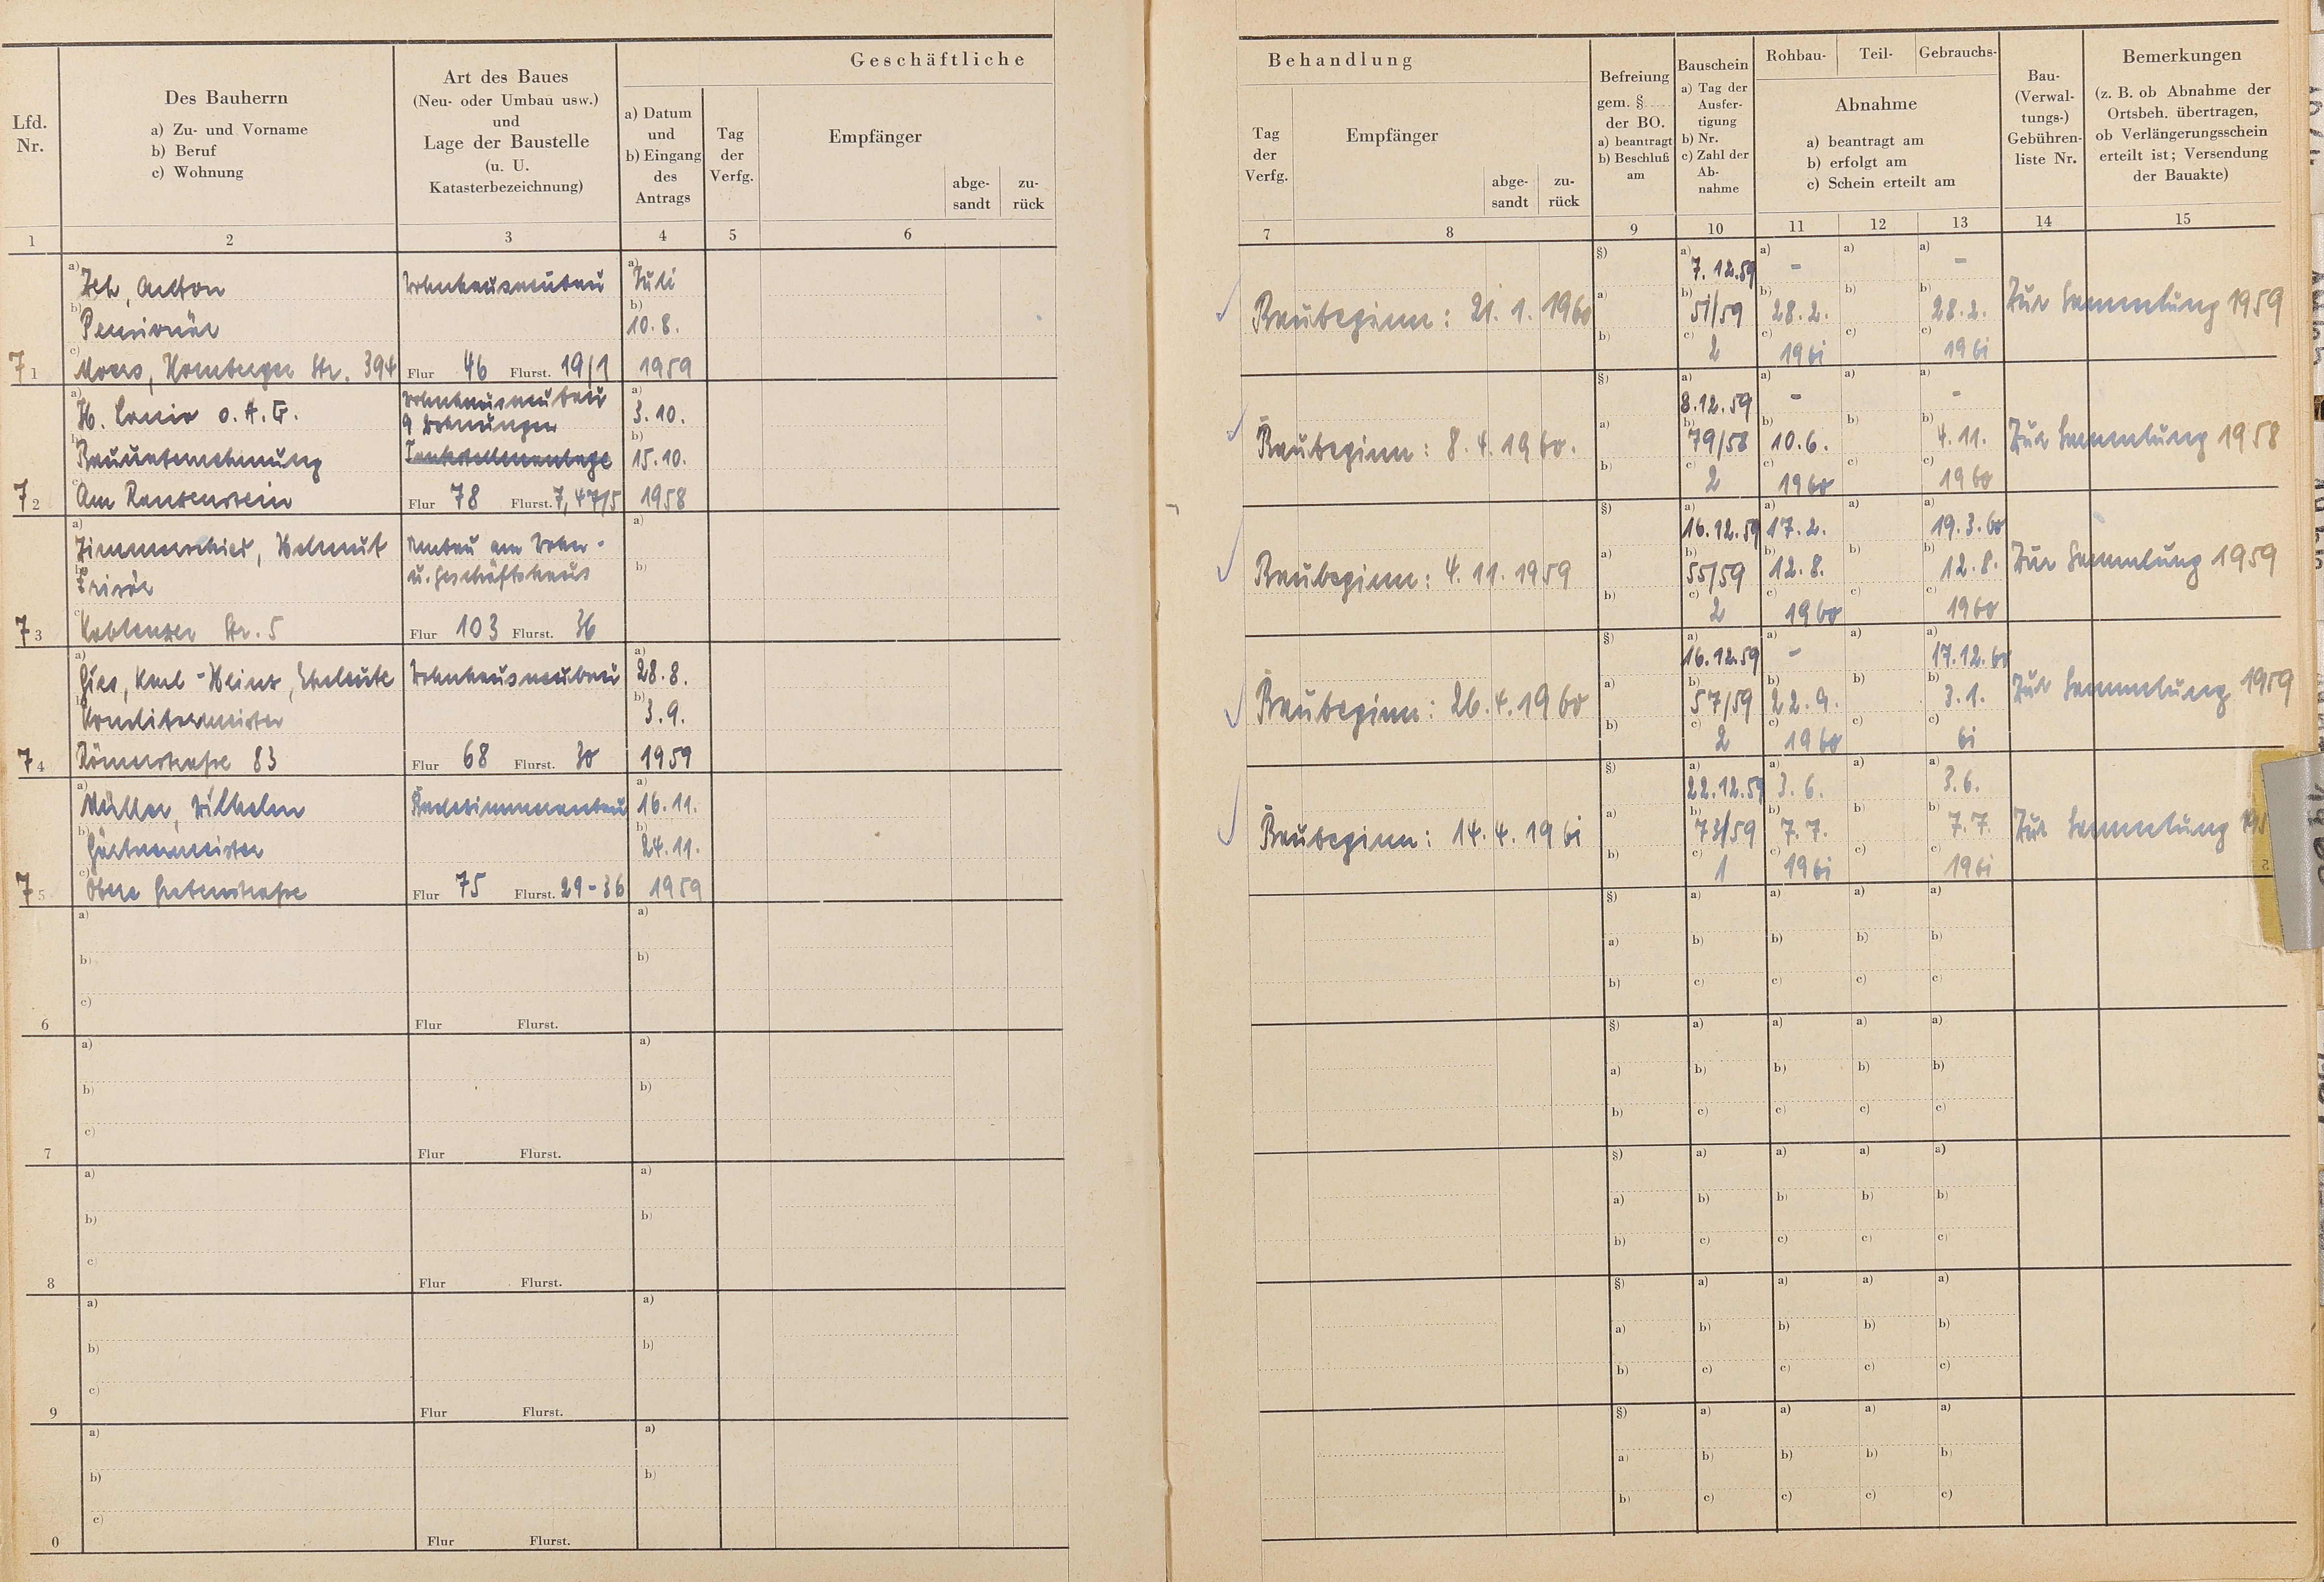 Geschäftliche
Lfd.
Nr.
Des Bauherrn
a) Zu- und Vorname
b) Beruf
c) Wohnung
Art des Baues
(Neu- oder Umbau usw.)
und
Lage der Baustelle
(u. U.
Katasterbezeichnung)
a) Datum
und
b) Eingang
des
Antrags
Tag
der
Verfg.
Empfänger
abge-
sandt
zu-
rück
1 2 3 4 5 6
a) Anton Wohnhausneubau a) Juli
b) Pensionär b) 10.8.
71 c) Moers, Homberger Str. 394 Flur 46 Flurst. 19/1 1959
a) H. o. H. G. Wohnhausneubau a) 3.10.
9 Wohnungen
b) Bauunternehmung Tankstellenanlage b) 15.10.
72 c) Am Rautenstein Flur 78 Flurst. 7, 47/5 1958
a) Helmut Umbau am Wohn- a)
b) Frisör u. Geschäftshaus b)
73 c) Koblenzer Str. 5 Flur 103 Flurst. 36
a) Gies, Karl-Heinz, Eheleute Wohnhausneubau a) 28.8.
b) Konditormeister b) 3.9.
74 Römerstraße 83 Flur 68 Flurst. 30 1959
a) Müller, Wilhelm Badezimmeranbau a) 16.11.
b) Gärtnermeister b) 24.11.
75 c) Obere Grebenstraße Flur 75 Flurst. 29-36 1959
a) a)
b) b)
c)
6 Flur Flurst.
a) a)
b) b)
c)
7 Flur Flurst.
a) a)
b) b)
c)
8 Flur Flurst.
a) a)
b) b)
c)
9 Flur Flurst.
a) a)
b) b)
c)
0 Flur Flurst.
Behandlung
Tag
der
Verfg.
Empfänger
abge-
sandt
zu-
rück
Befreiung
gem. §
der BO.
a) beantragt
b) Beschluß
am
Bauschein
a) Tag der
Ausfer-
tigung
b) Nr.
c) Zahl der
Ab-
nahme
Rohbau- Teil- Gebrauchs-
Abnahme
a) beantragt am
b) erfolgt am
c) Schein erteilt am
Bau-
(Verwal-
tungs-)
Gebühren-
liste Nr.
Bemerkungen
(z. B. ob Abnahme der
Ortsbeh. übertragen,
ob Verlängerungsschein
erteilt ist; Versendung
der Bauakte)
7 8 9 10 11 12 13 14 15
§) a) 7.12.59 a) - a) a) -
Baubeginn: 21.1.1960 a) b) 51/59 b) 28.2. b) b) 28.2. Zur Sammlung 1959
b) c) 2 c) 1961 c) c) 1961
§) a) 8.12.59 a) - a) a) -
Baubeginn: 8.4.1960. a) b) 79/58 b) 10.6. b) b) 4.11. Zur Sammlung 1958
b) c) 2 c) 1960 c) c) 1960
§) a) 16.12.59 a) 17.2. a) a) 19.3.60
Baubeginn: 4.11.1959 a) b) 55/59 b) 12.8. b) b) 12.8. Zur Sammlung 1959
b) c) 2 c) 1960 c) c) 1960
§) a) 16.12.59 a) - a) a) 17.12.60
Baubeginn: 26.4.1960 a) b) 57/59 b) 22.9. b) b) 3.1. Zur Sammlung 1959
b) c) 2 c) 1960 c) c) 61
§) a) 22.12.59 a) 3.6. a) a) 3.6.
Baubeginn: 14.4.1961 a) b) 73/59 b) 7.7. b) b) 7.7. Zur Sammlung 195
b) c) 1 c) 1961 c) c) 1961
§) a) a) a) a)
a) b) b) b) b)
b) c) c) c) c)
§) a) a) a) a)
a) b) b) b) b)
b) c) c) c) c)
§) a) a) a) a)
a) b) b) b) b)
b) c) c) c) c)
§) a) a) a) a)
a) b) b) b) b)
b) c) c) c) c)
§) a) a) a) a)
a) b) b) b) b)
b) c) c) c) c)